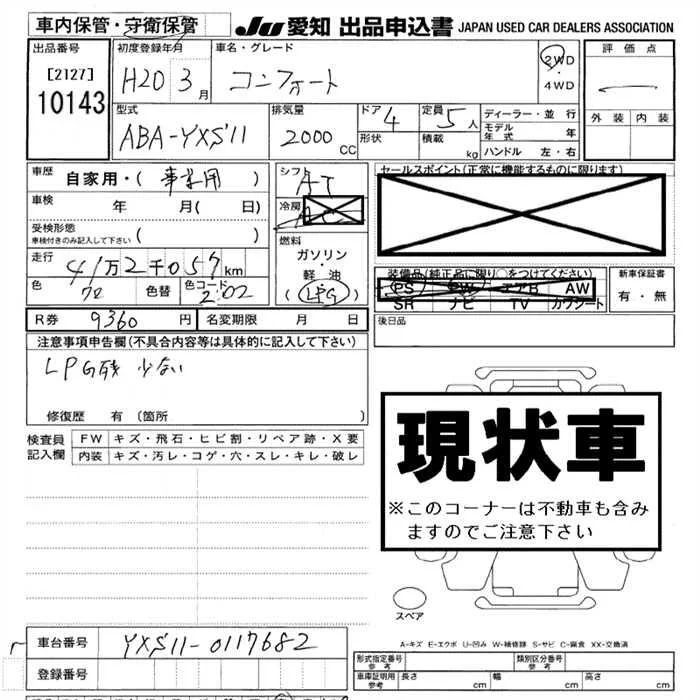 車内保管・守衛保管 JU 愛知 出品申込書 JAPAN USED CAR DEALERS ASSOCIATION
出品番号 初度登録年月 車名・グレード 2WD 評価点
[2127] H20 3月 コンフォート ・
10143 4WD
型式 排気量 ドア 4 定員 5人 ディーラー・並行 外装 内装
ABA-YXS11 2000cc 形状 積載 kg モデル年式 年
ハンドル 左・右
車歴 自家用・(事業用) シフト AT セールスポイント(正常に機能するものに限ります)
車検 年 月(日) 冷房
受検形態 ( )
車検付きのみ記入して下さい
燃料
走行 41万2千057km ガソリン・ 装備品(純正品に限り○をつけてください) 新車保証書
軽油 PS PW エアB AW 有・無
色 色替 色コード 202 (LPG) SR ナビ TV カワシート
R券 9360円 名変期限 月 日 後日品
注意事項申告欄(不具合内容等は具体的に記入して下さい)
LPG残 少ない
修復歴 有(箇所
検査員 FW キズ・飛石・ヒビ割・リペア跡・X要
記入欄 内装 キズ・汚レ・コゲ・穴・スレ・キレ・破レ
現状車
※このコーナーは不動車も含み
ますのでご注意下さい
スペア
A-キズ E-エクボ U-凹み W-補修跡 S-サビ C-腐食 XX-交換済
車台番号 YXS11-0117682
登録番号
形式指定番号 参考 類別区分番号 参考
車庫証明用 参考 長さ cm 幅 cm 高さ cm